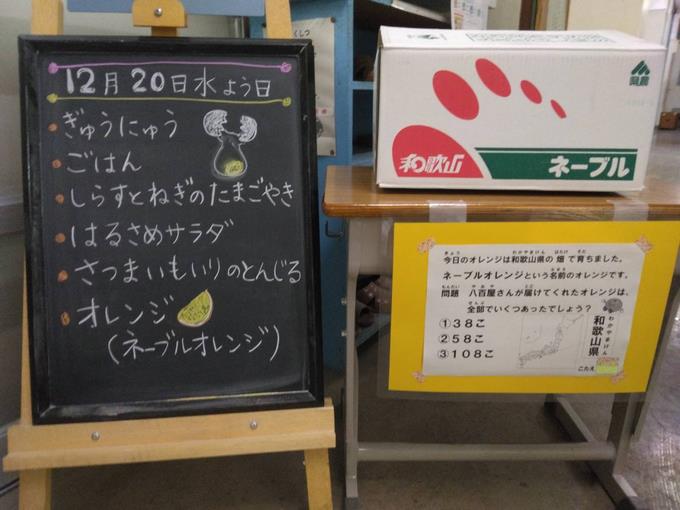 12月20日水よう日
ぎゅうにゅう
ごはん
しらすとねぎのたまごやき
はるさめサラダ
さつまいもいりのとんじる
オレンジ
(ネーブルオレンジ)
和歌山
ネーブル
今日のオレンジは和歌山県の畑で育ちました。
ネーブルオレンジという名前のオレンジです。
問題 八百屋さんが届けてくれたオレンジは、
全部でいくつあったでしょう?
①38こ
②58こ
③108こ
和歌山県
わかやまけん
こたえ